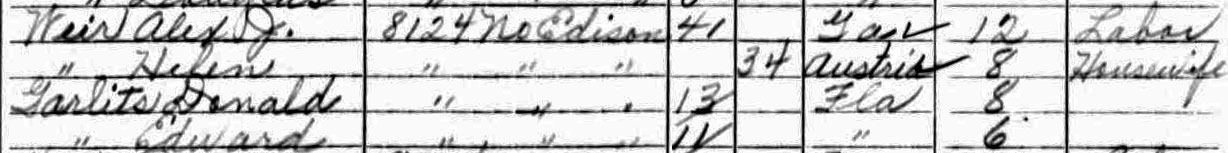 Weir Alex J. 8124 No Edison 41 Ga 12 Labor
" Helen " " " 34 Austria 8 Housewife
Garlits Donald " " " 13 Fla 8
" Edward " " " 11 " 6